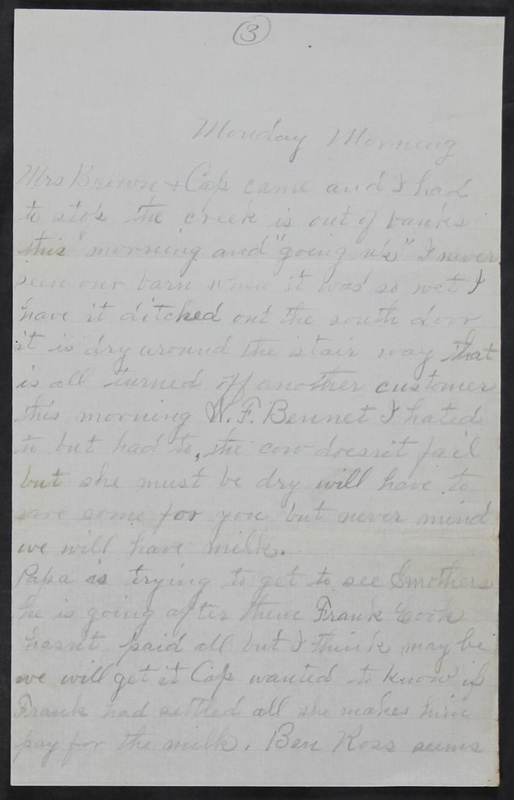 3
Monday Morning
Mrs Brown & Cap came and I had
to stop the creek is out of banks
this morning and "going up" I never
seen our barn when it was so wet I
have it ditched out the south door
it is dry around the stair way that
is all turned off another customer
this morning W. F. Bennet I hated
to but had to, the cow doesn't fail
but she must be dry will have to
save some for you but never mind
we will have milk.
Papa is trying to get to see Smothers
he is going after them Frank Cook
hasn't paid all but I think may be
we will get it Cap wanted to know if
Frank had settled all she makes him
pay for the milk. Ben Ross seems